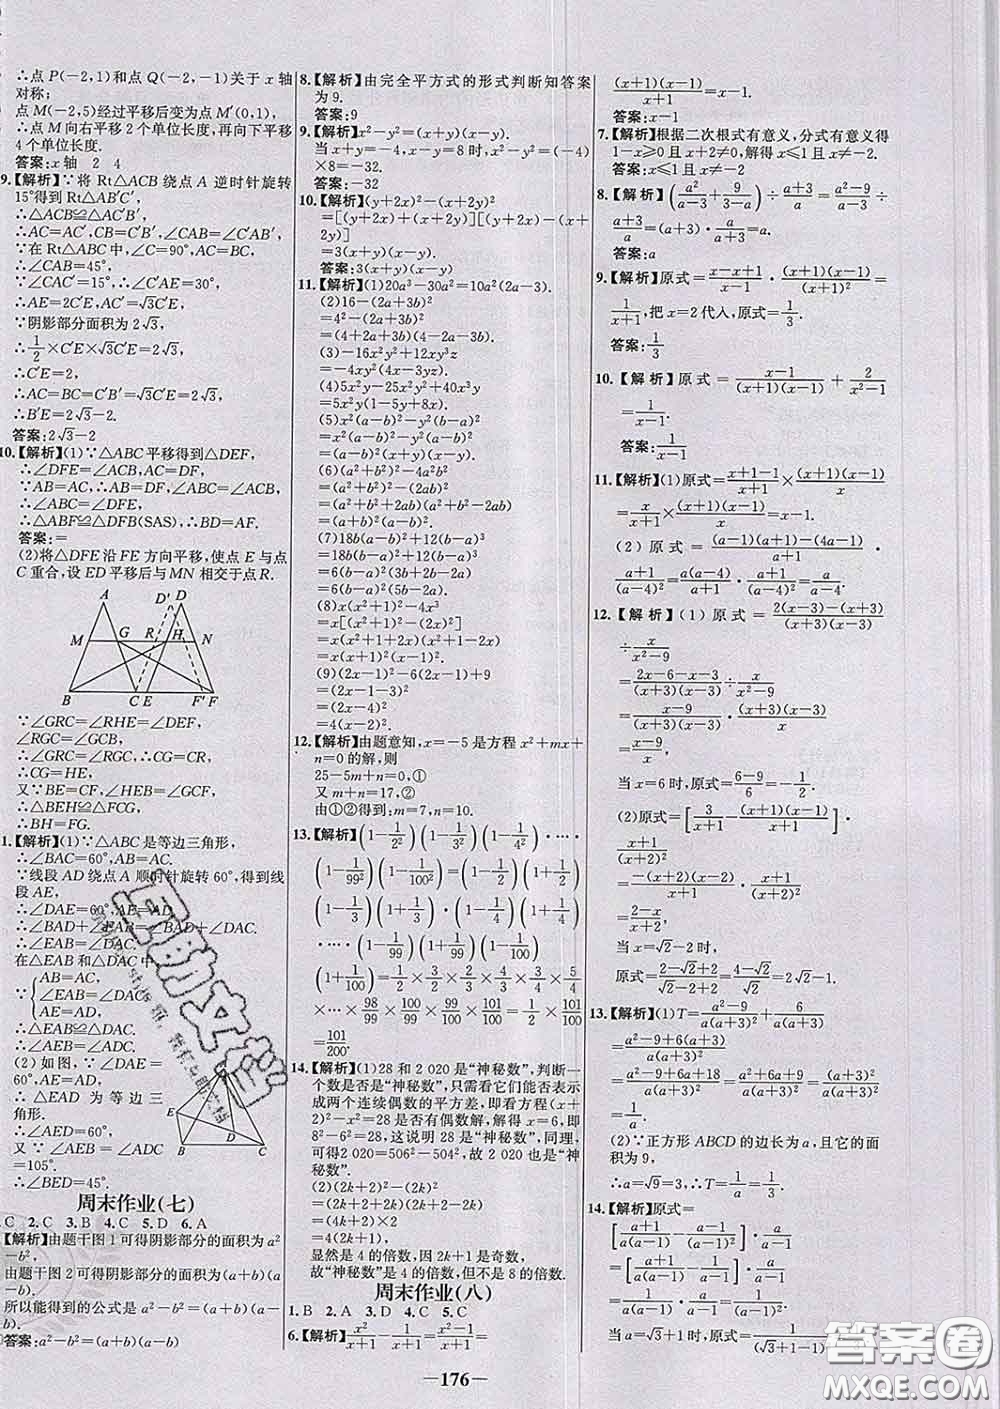 ∴点 P(-2,1)和点 Q(-2,-1)关于 x 轴
对称;
点 M(-2,5)经过平移后变为点 M′(0,1),
∴点 M 向右平移 2 个单位长度,再向下平移
4 个单位长度.
答案:x 轴 2 4
9.【解析】∵将 Rt△ACB 绕点 A 逆时针旋转
15°得到 Rt△AB′C′,
∴△ACB≌△AC′B′,
∴AC=AC′,CB=C′B′,∠CAB=∠C′AB′.
∵在 Rt△ABC 中,∠C=90°,AC=BC,
∴∠CAB=45°.
∵∠CAC′=15°,∴∠C′AE=30°,
∴AE=2C′E,AC′=√3C′E.
∵阴影部分面积为 2√3,
∴1/2×C′E×√3C′E=2√3,
∴C′E=2,
∴AC=BC=C′B′=√3C′E=2√3,
∴B′E=2√3-2.
答案:2√3-2
10.【解析】(1)∵△ABC 平移得到△DEF,
∴∠DFE=∠ACB,AC=DF,
∵AB=AC,∴AB=DF,∠ABC=∠ACB,
∴∠ABC=∠DFE,
∴△ABF≌△DFB(SAS),∴BD=AF.
答案:=
(2)将△DFE 沿 FE 方向平移,使点 E 与点
C 重合,设 ED 平移后与 MN 相交于点 R.
A D′ D
M G R H N
B C E F′ F
∵∠GRC=∠RHE=∠DEF,
∠RGC=∠GCB,
∴∠GRC=∠RGC,∴CG=CR,
∴CG=HE,
又∵BE=CF,∠HEB=∠GCF,
∴△BEH≌△FCG,
∴BH=FG.
1.【解析】(1)∵△ABC 是等边三角形,
∴∠BAC=60°,AB=AC.
∵线段 AD 绕点 A 顺时针旋转 60°,得到线
段 AE,
∴∠DAE=60°,AE=AD.
∴∠BAD+∠EAB=∠BAD+∠DAC.
∴∠EAB=∠DAC.
在△EAB 和△DAC 中,
AB=AC,
∵ ∠EAB=∠DAC,
AE=AD,
∴△EAB≌△DAC.
∴∠AEB=∠ADC.
(2)如图,∵∠DAE=
60°,AE=AD,
∴△EAD 为等边三
角形.
∴∠AED=60°,
又∵∠AEB=∠ADC
=105°.
∴∠BED=45°.
E D
B C
周末作业(七)
C 2.C 3.B 4.C 5.D 6.A
【解析】由题干图 1 可得阴影部分的面积为 a²
-b²,
由题干图 2 可得阴影部分的面积为(a+b)(a
-b),
所以能得到的公式是 a²-b²=(a+b)(a-b).
答案:a²-b²=(a+b)(a-b)
8.【解析】由完全平方式的形式判断知答案
为 9.
答案:9
9.【解析】x²-y²=(x+y)(x-y).
当 x+y=-4,x-y=8 时,x²-y²=(-4)
×8=-32.
答案:-32
10.【解析】(y+2x)²-(x+2y)²
=[(y+2x)+(x+2y)][(y+2x)-(x+2y)]
=3(x+y)(x-y).
答案:3(x+y)(x-y)
11.【解析】(1)20a³-30a²=10a²(2a-3).
(2)16-(2a+3b)²
=4²-(2a+3b)²
=(4+2a+3b)(4-2a-3b).
(3)-16x²y²+12xy³z
=-4xy²(4x-3yz).
(4)5x²y-25x²y²+40x³y
=5x²y(1-5y+8x).
(5)x²(a-b)²-y²(b-a)²
=x²(a-b)²-y²(a-b)²
=(a-b)²(x+y)(x-y).
(6)(a²+b²)²-4a²b²
=(a²+b²+2ab)(a²+b²-2ab)
=(a+b)²(a-b)².
(7)18b(a-b)²-12(a-b)³
=18b(a-b)²+12(b-a)³
=6(b-a)²(3b+2b-2a)
=6(b-a)²(5b-2a).
(8)x(x²+1)²-4x³
=x[(x²+1)²-(2x)²]
=x(x²+1+2x)(x²+1-2x)
=x(x+1)²(x-1)².
(9)(2x-1)²-6(2x-1)+9
=(2x-1-3)²
=(2x-4)²
=4(x-2)².
12.【解析】由题意知,x=-5 是方程 x²+mx+
n=0 的解,则
25-5m+n=0,①
m-2n+17=0,②
由①②得到:m=7,n=10.
13.【解析】(1-1/2²)(1-1/3²)(1-1/4²)·…·
(1-1/99²)(1-1/100²)=(1-1/2)(1+1/2)
(1-1/3)(1+1/3)·(1-1/4)(1+1/4)
·…·(1-1/99)(1+1/99)(1-1/100)
(1+1/100)=1/2×3/2×2/3×4/3×3/4×5/4
×…×98/99×100/99×99/100×101/100=1/2×101/100=
101/200.
14.【解析】(1)28 和 2 020 是“神秘数”,判断一
个数是否是“神秘数”,只需看它们能否表示
成两个连续偶数的平方差,即看方程(x+
2)²-x²=28 是否有偶数解,解得 x=6,即
8²-6²=28,这说明 28 是“神秘数”,同理,
可得2 020=506²-504²,故 2 020 也是“神
秘数”.
(2)(2k+2)²-(2k)²
=(2k+2+2k)(2k+2-2k)
=2(4k+2)
=4(2k+1),
显然是 4 的倍数,因 2k+1 是奇数,
故“神秘数”是 4 的倍数,但不是 8 的倍数.
周末作业(八)
1.B 2.A 3.D 4.C 5.C
6.【解析】x²/(x+1)-1/(x+1)=(x²-1)/(x+1)=
(x+1)(x-1)/(x+1)=x-1.
答案:x-1
7.【解析】根据二次根式有意义,分式有意义得
1-x≥0 且 x+2≠0,解得 x≤1 且 x≠-2.
答案:x≤1 且 x≠-2
8.【解析】(a²/(a-3)+9/(3-a))÷(a+3)/a=(a²-9)/(a-3)÷
(a+3)/a=(a+3)·a/(a+3)=a.
答案:a
9.【解析】原式=(x-x+1)/(x-1)·(x+1)(x-1)/(x+1)²=
1/(x+1),把 x=2 代入,原式=1/3.
答案:1/3
10.【解析】原式=(x-1)/((x+1)(x-1))+2/(x²-1)
=1/(x-1).
答案:1/(x-1)
11.【解析】(1)原式=(x+1-1)/(x+1)×(x+1)(x-1)/x
=x/(x+1)×(x+1)(x-1)/x=x-1.
(2)原式=((a-1)(a+1)-(4a-1))/(a+1)·
(a+1)/(a-4)²=a(a-4)/(a+1)·(a+1)/(a-4)²=a/(a-4).
12.【解析】(1)原式=(2(x-3)-(x+3))/((x+3)(x-3))
÷x/(x²-9)
=(2x-6-x-3)/((x+3)(x-3))÷x/(x²-9)
=(x-9)/((x+3)(x-3))·(x+3)(x-3)/x
=(x-9)/x,
当 x=6 时,原式=(6-9)/6=-1/2.
(2)原式=[3/(x+1)-(x+1)(x-1)/(x+1)]·
(x+1)/(x+2)²
=-(x+2)(x-2)/(x+1)·(x+1)/(x+2)²
=(2-x)/(x+2),
当 x=√2-2 时,
原式=(2-√2+2)/(√2-2+2)=(4-√2)/√2=2√2-1.
13.【解析】(1)T=(a²-9)/(a(a+3)²)+6/(a(a+3))
=(a²-9)/(a(a+3)²)+6(a+3)/(a(a+3)²)
=(a²-9+6a+18)/(a(a+3)²)=(a²+6a+9)/(a(a+3)²)=(a+3)²/(a(a+3)²)
=1/a.
(2)∵正方形 ABCD 的边长为 a,且它的面
积为 9,
∴a=√9=3,∴T=1/a=1/3.
14.【解析】原式=
[(a+1)/(a(a-1))-(a-1)/(a-1)²]÷(a-1)/a=
[(a+1)/(a(a-1))-1/(a-1)]·a/(a-1)=
1/(a(a-1))·a/(a-1)=1/(a-1)²,
当 a=√3+1 时,原式=1/(√3+1-1)²=1/3.
—176—
答案圈
MXQE.COM